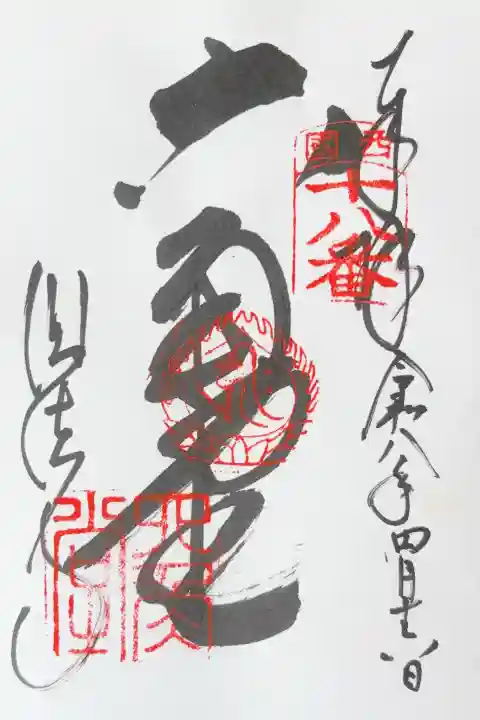 奉拝
西國
十八番
令和八年四月十六日
六角堂
頂法寺